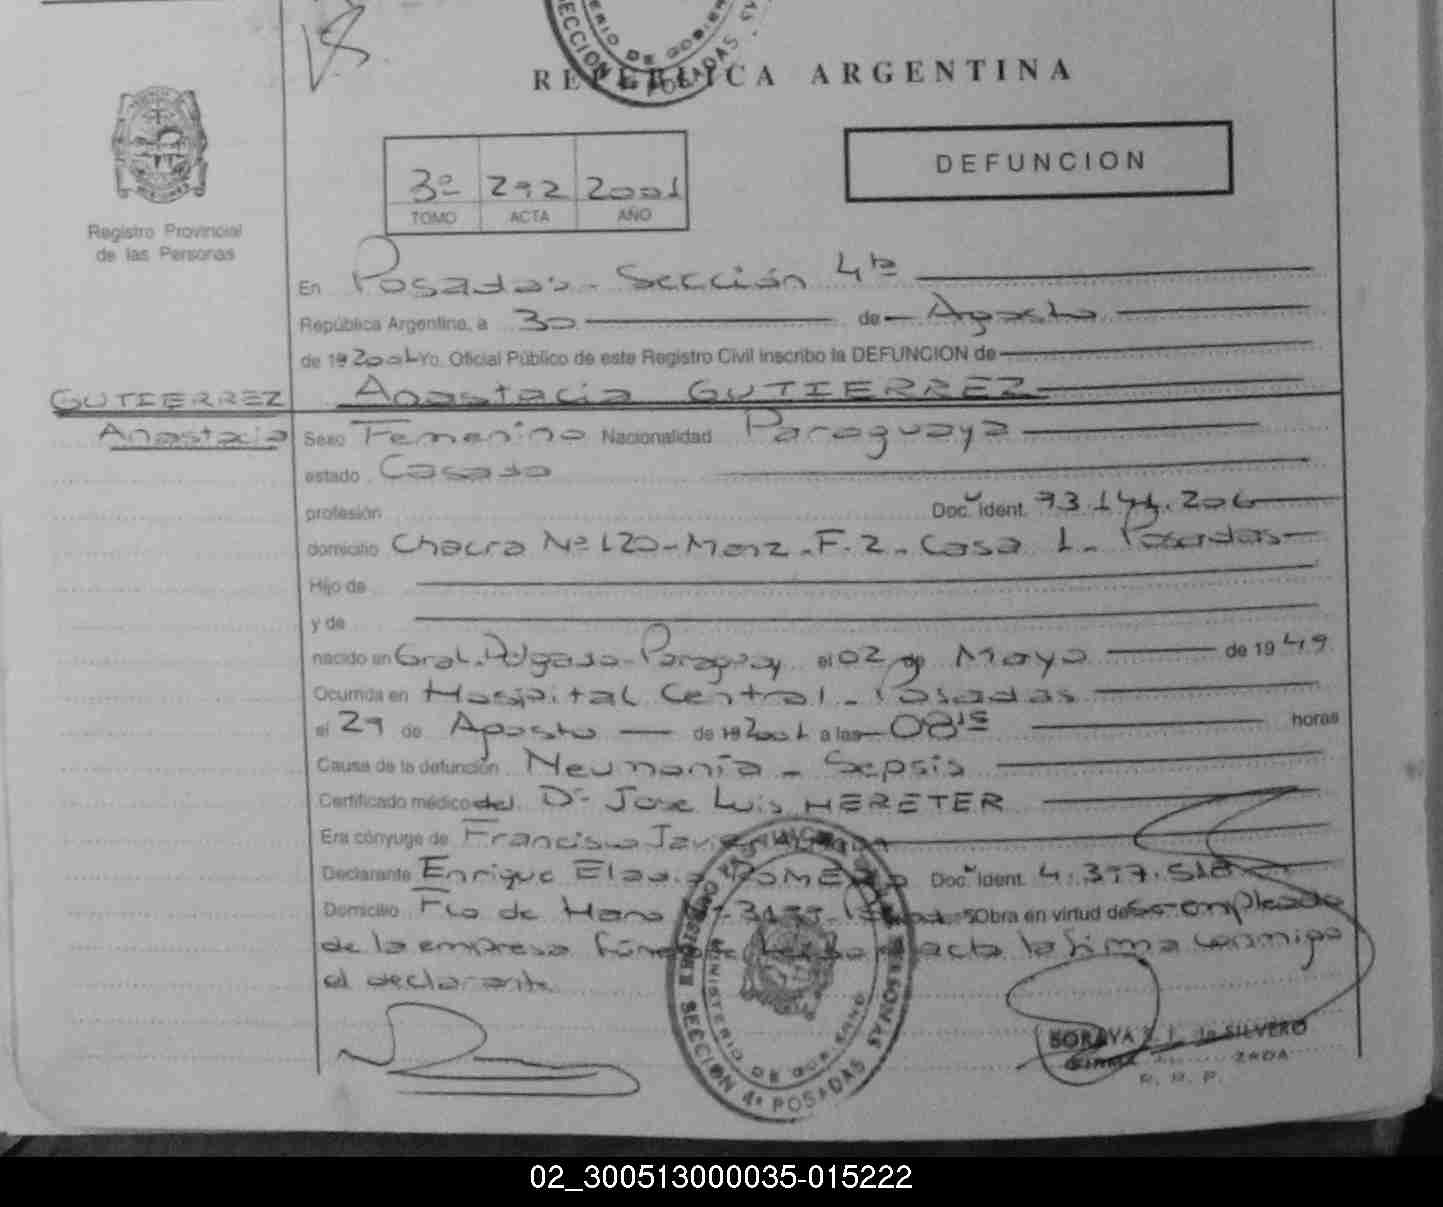 REPUBLICA ARGENTINA
DEFUNCION
3º 292 2001
TOMO ACTA AÑO
Registro Provincial
de las Personas
En Posadas - Sección 4ta
República Argentina, a 30 de Agosto
de 19 2001 Yo, Oficial Público de este Registro Civil inscribo la DEFUNCION de
GUTIERREZ Anastacia GUTIERREZ
Anastacia Sexo Femenino Nacionalidad Paraguaya
estado Casada
profesión Doc. Ident.
domicilio Chacra Nº 120 - Manz. F. 2 - Casa 1 - Posadas
Hijo de
y de
nacido en Gral. Delgado - Paraguay el 02 de Mayo de 19 49
Ocurrida en Hospital Central - Posadas
el 29 de Agosto de 19 2001 a las 08 15 horas
Causa de la defunción Neumonía - Sepsis
Certificado médico del Dr José Luis HERETER
Era cónyuge de Francisco Javier
Declarante Enrique Eladio ROMERO Doc. Ident. 4.397.518
Domicilio Fco de Haro Obra en virtud de Ser empleado
de la empresa acta la firma conmigo
el declarante
MINISTERIO DE GOBIERNO
SECCION 4ª POSADAS
SORAYA de SILVERO
R. P. P.
02_300513000035-015222